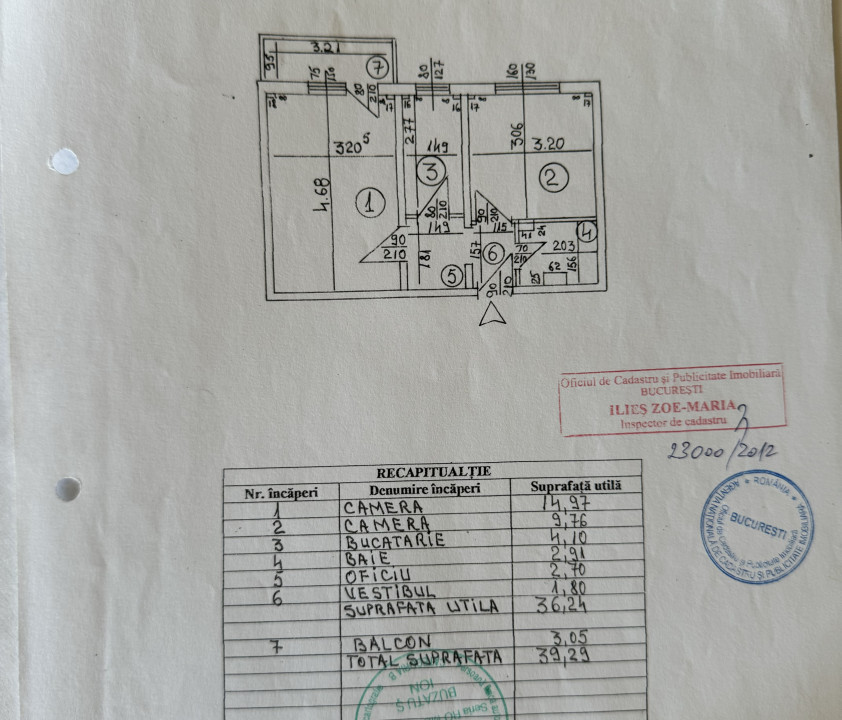 3.21
95
75
110
80
210
7
80
127
160
130
320⁵
4.68
1
277
149
3
80
210
149
306
3.20
2
90
210
115
41
24
4
203
157
6
70
210
62
156
25
90
210
181
5
90
210
Oficiul de Cadastru și Publicitate Imobiliară
BUCUREȘTI
ILIEȘ ZOE-MARIA
Inspector de cadastru
23000/2012
RECAPITUALȚIE
Nr. încăperi Denumire încăperi Suprafață utilă
1 CAMERA 14,97
2 CAMERA 9,76
3 BUCATARIE 4,10
4 BAIE 2,91
5 OFICIU 2,70
6 VESTIBUL 1,80
SUPRAFATA UTILA 36,24
7 BALCON 3,05
TOTAL SUPRAFATA 39,29
* ROMÂNIA *
AGENȚIA NAȚIONALĂ DE CADASTRU ȘI PUBLICITATE IMOBILIARĂ
Oficiul de Cadastru și Publicitate Imobiliară
BUCUREȘTI
BUZATU Ș
ION